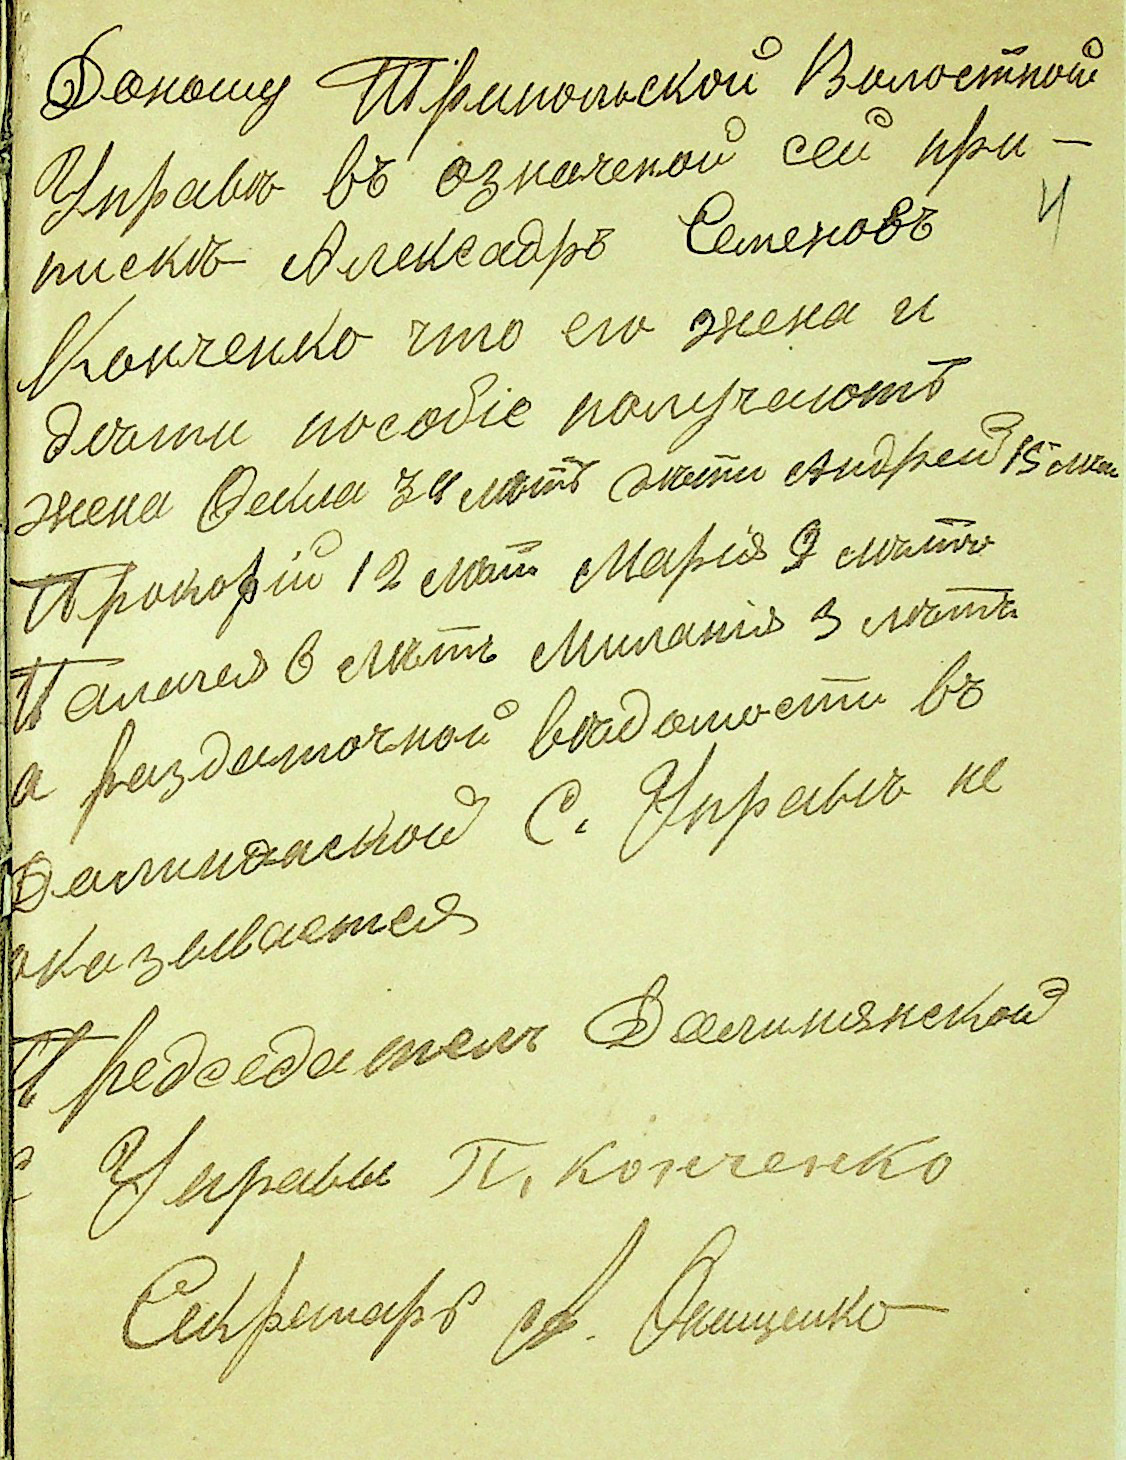 Доношу Трипольской Волостной
Управѣ въ означеной сей при-
пискѣ Алексадръ Семеновъ
Конченко что его жена и
дѣти пособіе получаютъ
жена Фекла 34 лѣтъ дѣти Андрей 15 лѣт
Прокофій 12 лѣт Марія 9 лѣтъ
Палагея 6 лѣтъ Миланія 3 лѣтъ
а раздаточной вѣдомости въ
Долинянской С. Управѣ не
оказывается
Предсѣдатель Долинянской
С Управы П. Конченко
Секретарь А. Онищенко
4